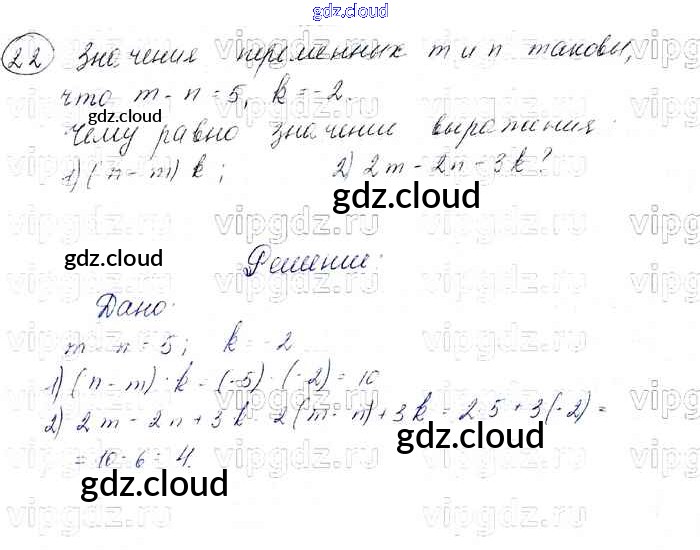 gdz.cloud
22 Значения переменных m и n таковы,
что m - n = 5, k = -2.
gdz.cloud
Чему равно значение выражения:
1) (n - m) k ; 2) 2m - 2n - 3k?
gdz.cloud
gdz.cloud
Решение:
Дано:
m - n = 5; k = -2
1) (n - m) · k = (-5) · (-2) = 10
2) 2m - 2n + 3k = 2(m - n) + 3k = 2·5 + 3(-2) =
= 10 - 6 = 4.
gdz.cloud
gdz.cloud
vipgdz.ru